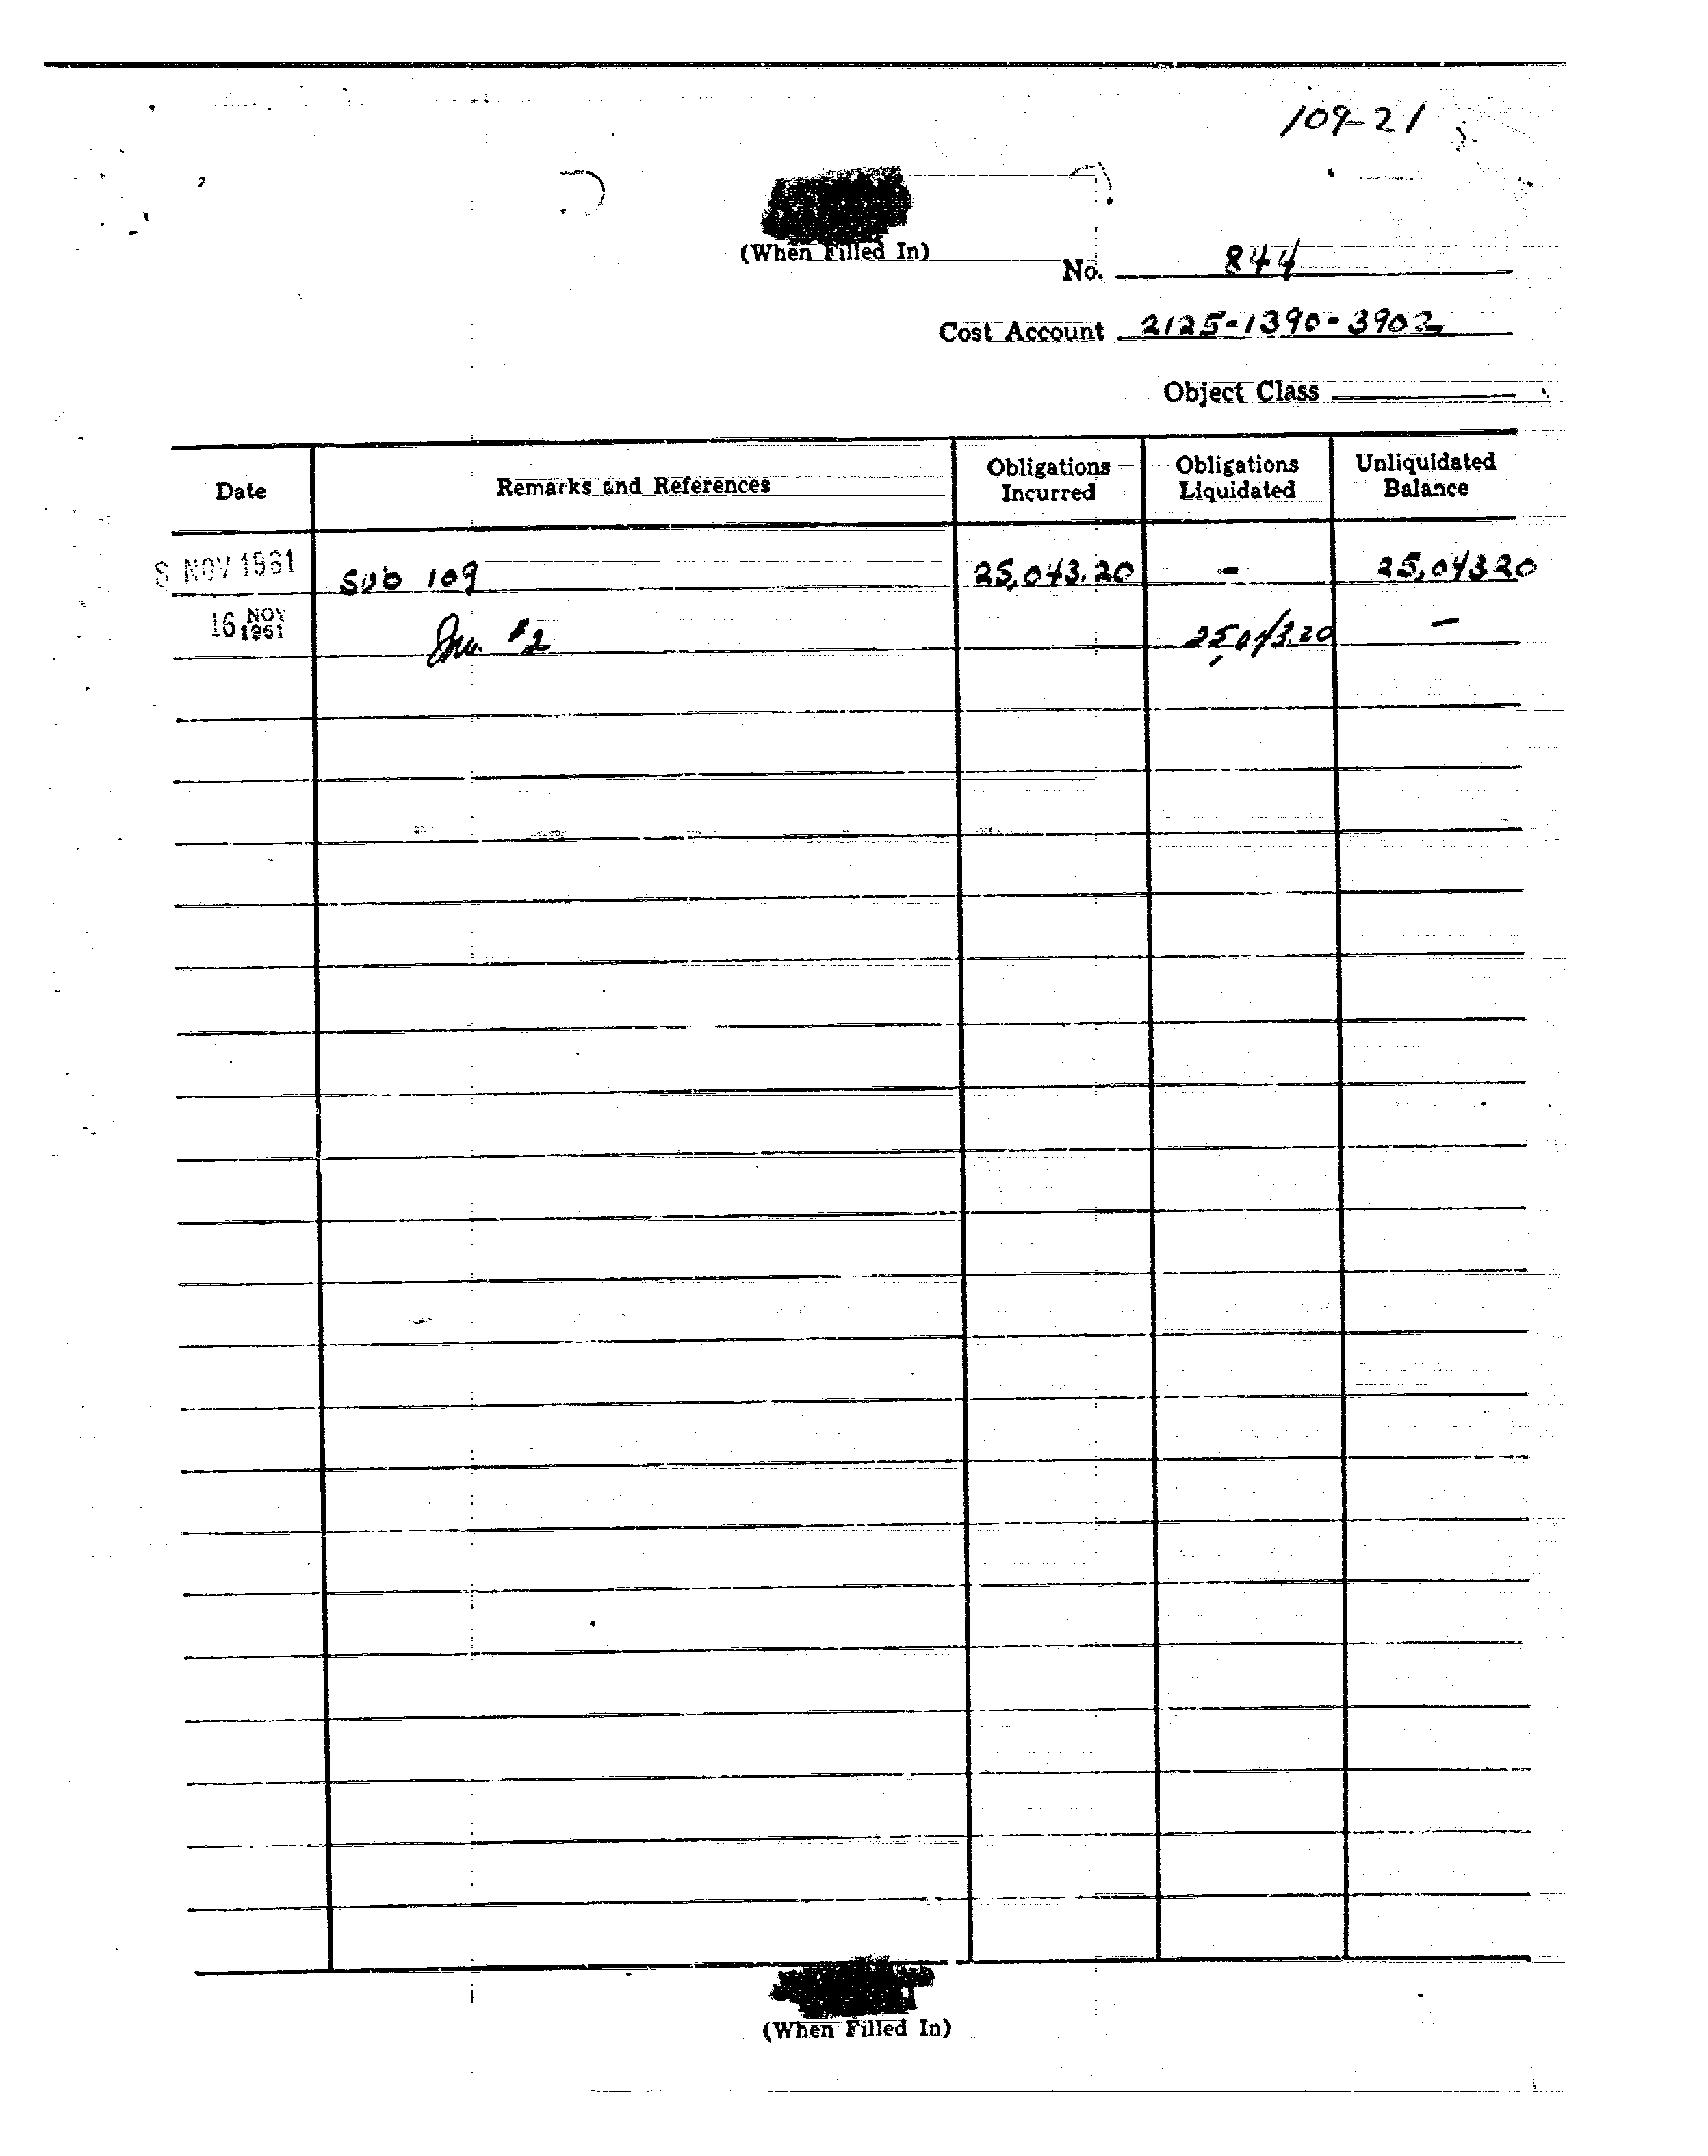 109-21
(When Filled In)
No. 844
Cost Account 2125-1390-3902
Object Class
Date Remarks and References Obligations Incurred Obligations Liquidated Unliquidated Balance
8 NOV 1961 SUB 109 25,043.20 - 25,043 20
16 NOV 1961 Inv. #2 25,043.20 -
(When Filled In)